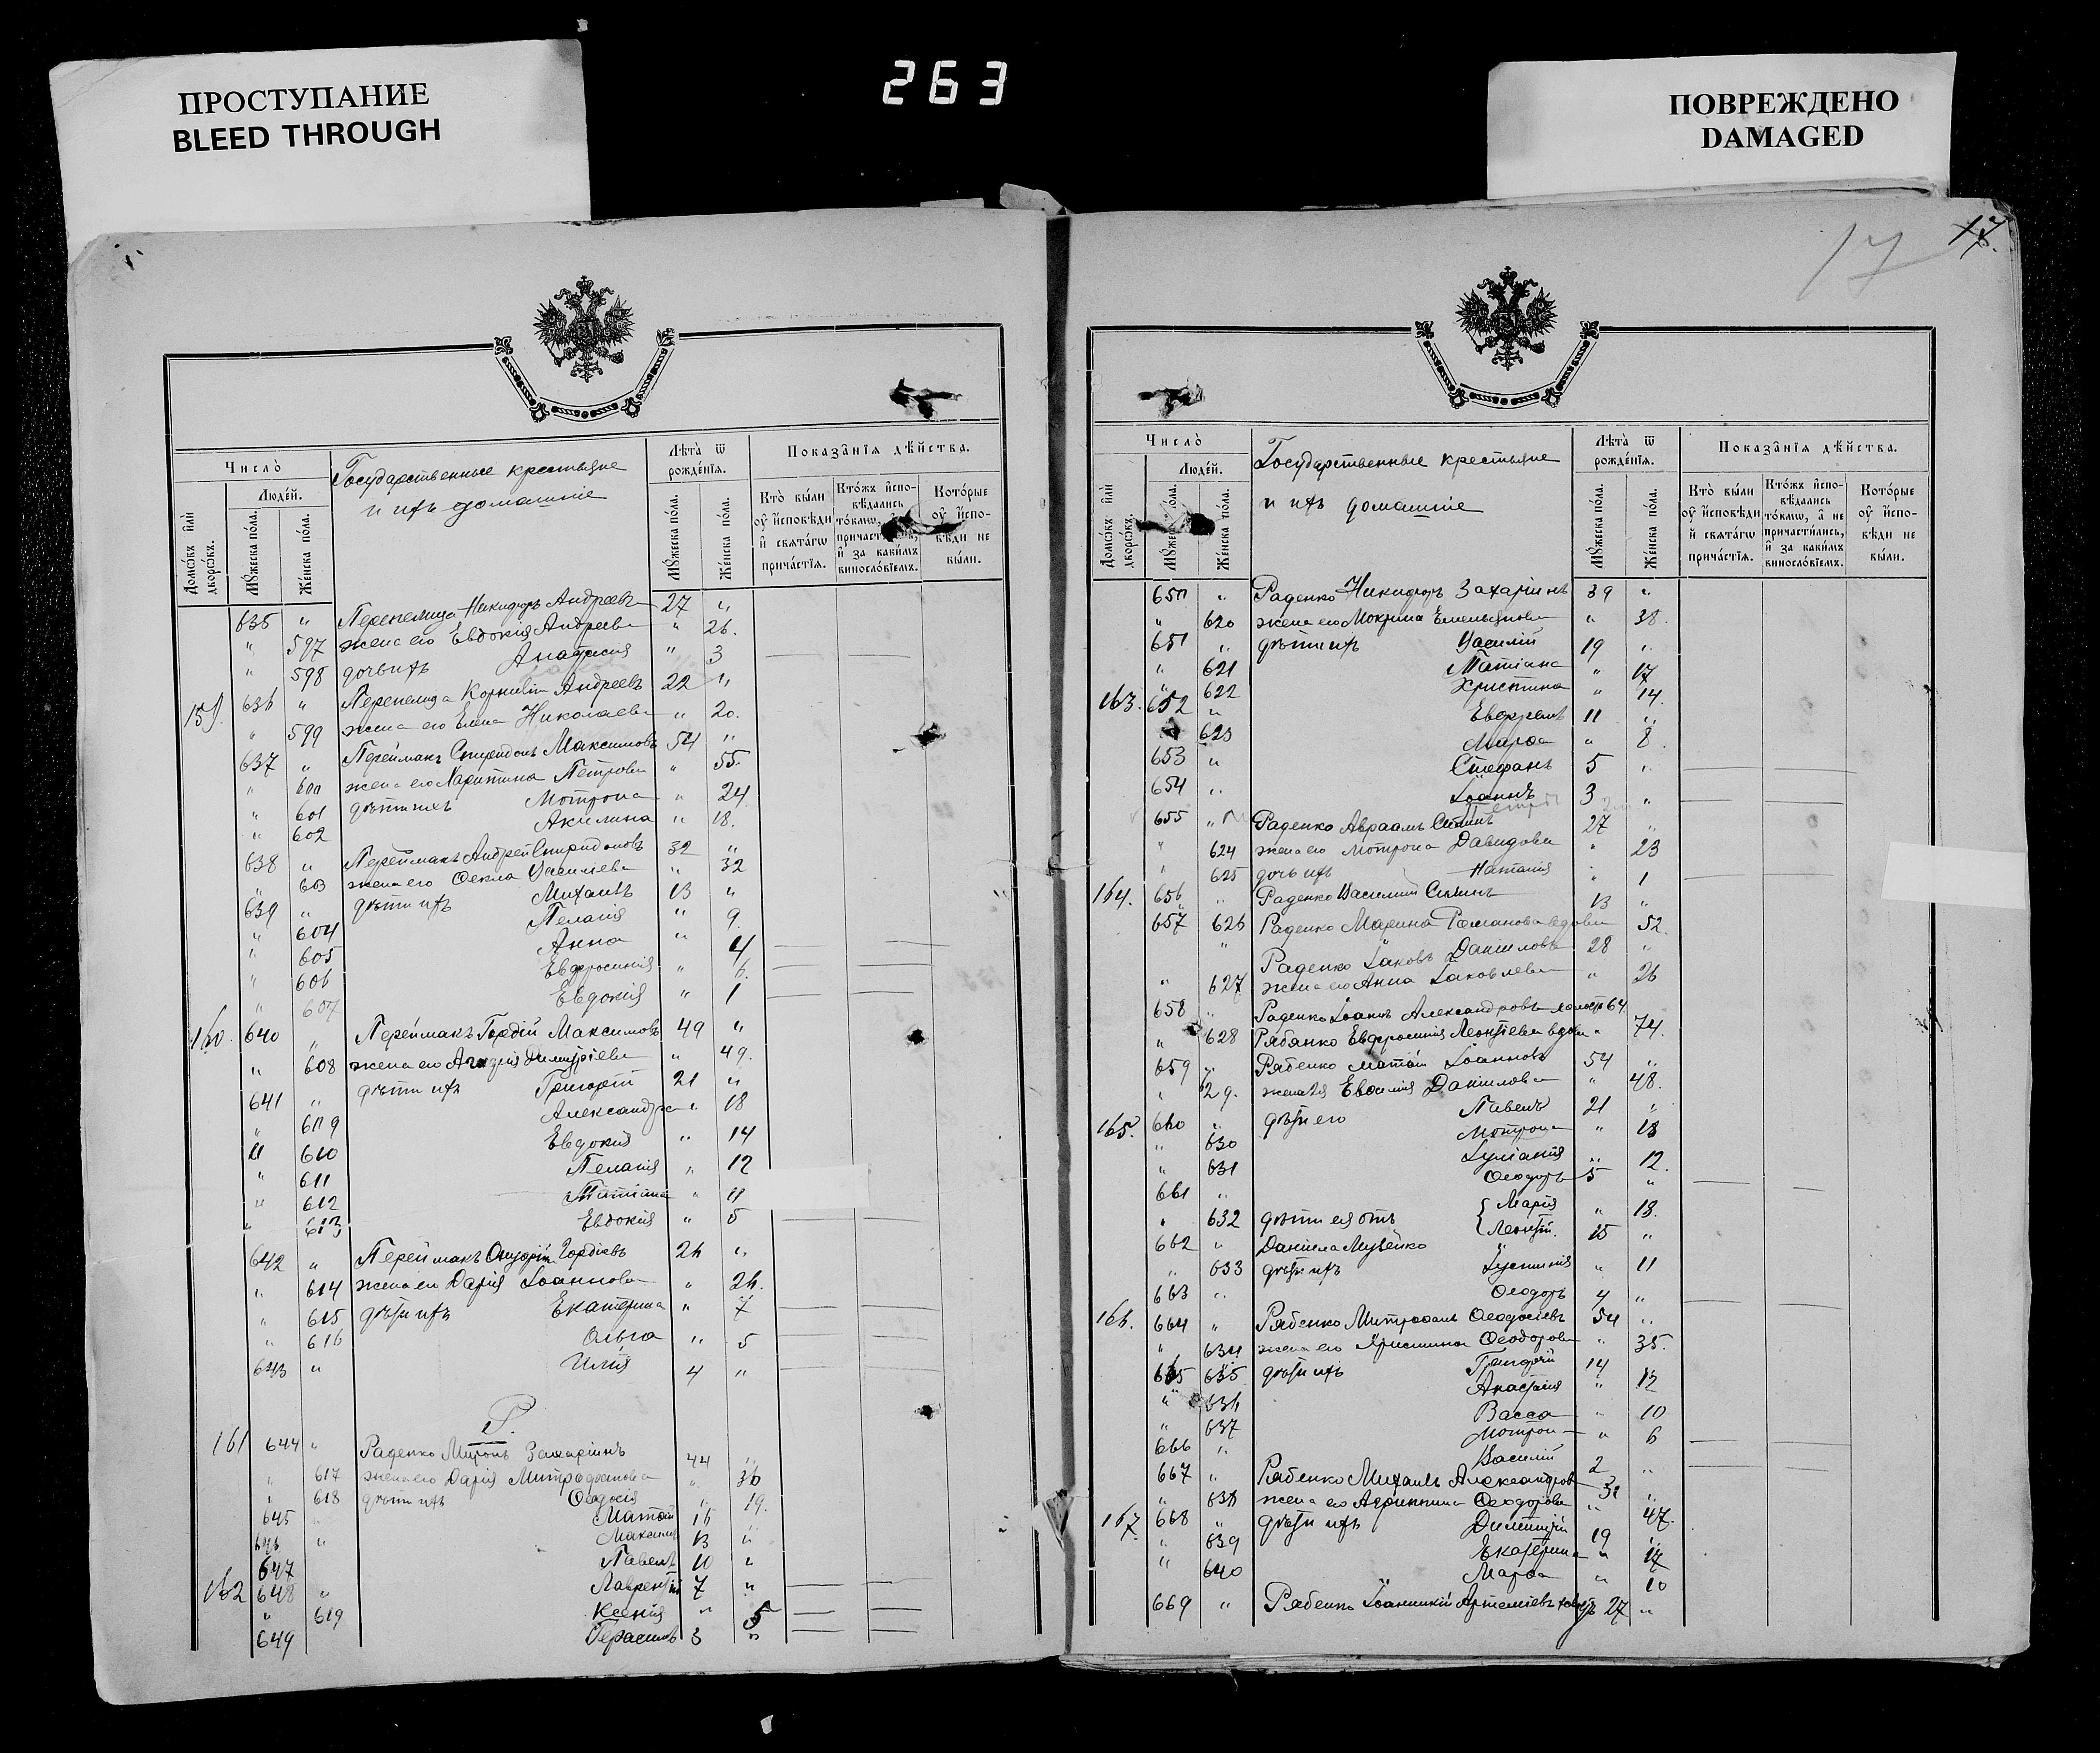 ПРОСТУПАНИЕ
BLEED THROUGH
263
ПОВРЕЖДЕНО
DAMAGED
17
17.
Число̀
Людей.
Домѡвъ илѝ дворѡвъ.
Мꙋжеска по́ла.
Же́нска по́ла.
Государственные крестьяне
и ихъ домашніе
Лѣта̀ ѿ рожде́нїѧ.
Мꙋжеска по́ла.
Же́нска по́ла.
Показа̑нїѧ дѣ́йства.
Кто̀ бы́ли оу҆ и҆сповѣди и҆ свѧта́гѡ прича́стїѧ.
Кто́жъ и҆спо-вѣдались то́кмѡ, и҆ за каки́мъ винословїемъ.
Кото́рые оу҆ и҆спо-вѣди не бы́ли.
635 " Перепелица Никифоръ Андреевъ 27 "
" 597 жена его Евдокія Андреева " 26.
" 598 дочь ихъ Анастасія " 3
159. 636 " Перепелица Корнилій Андреевъ 22 "
" 599 жена его Елена Николаева " 20.
637 " Перейманъ Спиридонъ Максимовъ 54 "
" 600 жена его Харитина Петрова " 55.
" 601 дѣти ихъ Мотрона " 24
" 602 Акилина " 18.
638 " Перейманъ Андрей Спиридоновъ 32 "
" 603 жена его Ѳекла Васильева " 32
639 " дѣти ихъ Михаилъ 13 "
" 604 Пелагія " 9.
" 605 Анна " 4
" 606 Евфросинія " 6.
" 607 Евдокія " 1
160. 640 " Перейманъ Гордій Максимовъ 49 "
" 608 жена его Димитріева " 49.
641 " дѣти ихъ Григорій 21 "
" 609 Александра " 18
" 610 Евдокія " 14
" 611 Пелагія " 12
" 612 Татіана " 11
" 613 Евдокія " 5
642 " Перейманъ Онуфрій Гордіевъ 26 "
" 614 жена его Дарія Іоаннова " 26.
" 615 дѣти ихъ Екатерина " 7
" 616 Ольга " 5
643 " Илія 4 "
Р.
161 644 " Раденко Миронъ Захаріинъ 44 "
" 617 жена его Дарія Митрофанова " 36
" 618 дѣти ихъ Ѳеодосія " 19.
645 " Матѳій 16 "
646 " Максимъ 13 "
647 Павелъ 10 "
162 648 " Лаврентій 7 "
" 619 Ксенія " 5
649 Герасимъ 3 "
Число̀
Людей.
Домѡвъ илѝ дворѡвъ.
Мꙋжеска по́ла.
Же́нска по́ла.
Государственные крестьяне
и ихъ домашніе
Лѣта̀ ѿ рожде́нїѧ.
Мꙋжеска по́ла.
Же́нска по́ла.
Показа̑нїѧ дѣ́йства.
Кто̀ бы́ли оу҆ и҆сповѣди и҆ свѧта́гѡ прича́стїѧ.
Кто́жъ и҆спо-вѣдались то́кмѡ, а҆ не причасти́лись, и҆ за каки́мъ винословїемъ.
Кото́рые оу҆ и҆спо-вѣди не бы́ли.
650 " Раденко Никифоръ Захаріинъ 39 "
" 620 жена его Мокрина Емельянова " 38.
651 " дѣти ихъ Василій 19 "
" 621 Татіана " 17
" 622 Христина " 14.
163. 652 " 11 "
623 Марѳа " 8.
653 " Стефанъ 5 "
654 " Іоаннъ 3 "
655 " Раденко Авраамъ 27 "
" 624 жена его Мотрона Давидова " 23
" 625 дочь ихъ Наталія " 1
164. 656 " Раденко Василій 13 "
657 626 Раденко Марина Романова вдова 52.
" Раденко Іаковъ Даніиловъ 28 "
" 627 жена его Анна Іаковлева " 26
658 " Раденко Іоаннъ Александровъ холостъ 64
" 628 Рябянко Евфросинія Леонтіева вдова " 74.
659 " Рябенко Матѳій Іоанновъ 54 "
" 629. Евѳимія Даніилова " 48.
165. 660 " дѣти его Павелъ 21 "
" 630 Мотрона " 18
" 631 Іуліанія " 12.
661 " Ѳеодоръ 5 "
" 632 дѣти ея отъ Марія " 18.
662 " Даніила Мусейко Леонтій. 15 "
" 633 дѣти ихъ Іустинія " 11
663 " Ѳеодоръ 4 "
166. 664 " Рябенко Митрофанъ Ѳеодосіевъ 54 "
" 634 жена его Христина Ѳеодорова " 35.
665 635 дѣти ихъ Григорій 14
" 636 Анастасія " 12
" 637 Васса " 10
666 " Мотрона " 6
667 " Василій 2 "
" 638 Рябенко Михаилъ Александровъ 31 "
167. 668 " жена его Агрипина Ѳеодорова " 47.
" 639 дѣти ихъ Димитрій 19
" 640 Екатерина " 17
Марѳа " 10
669 " Рябенко Іоанникій Артеміевъ 27 "